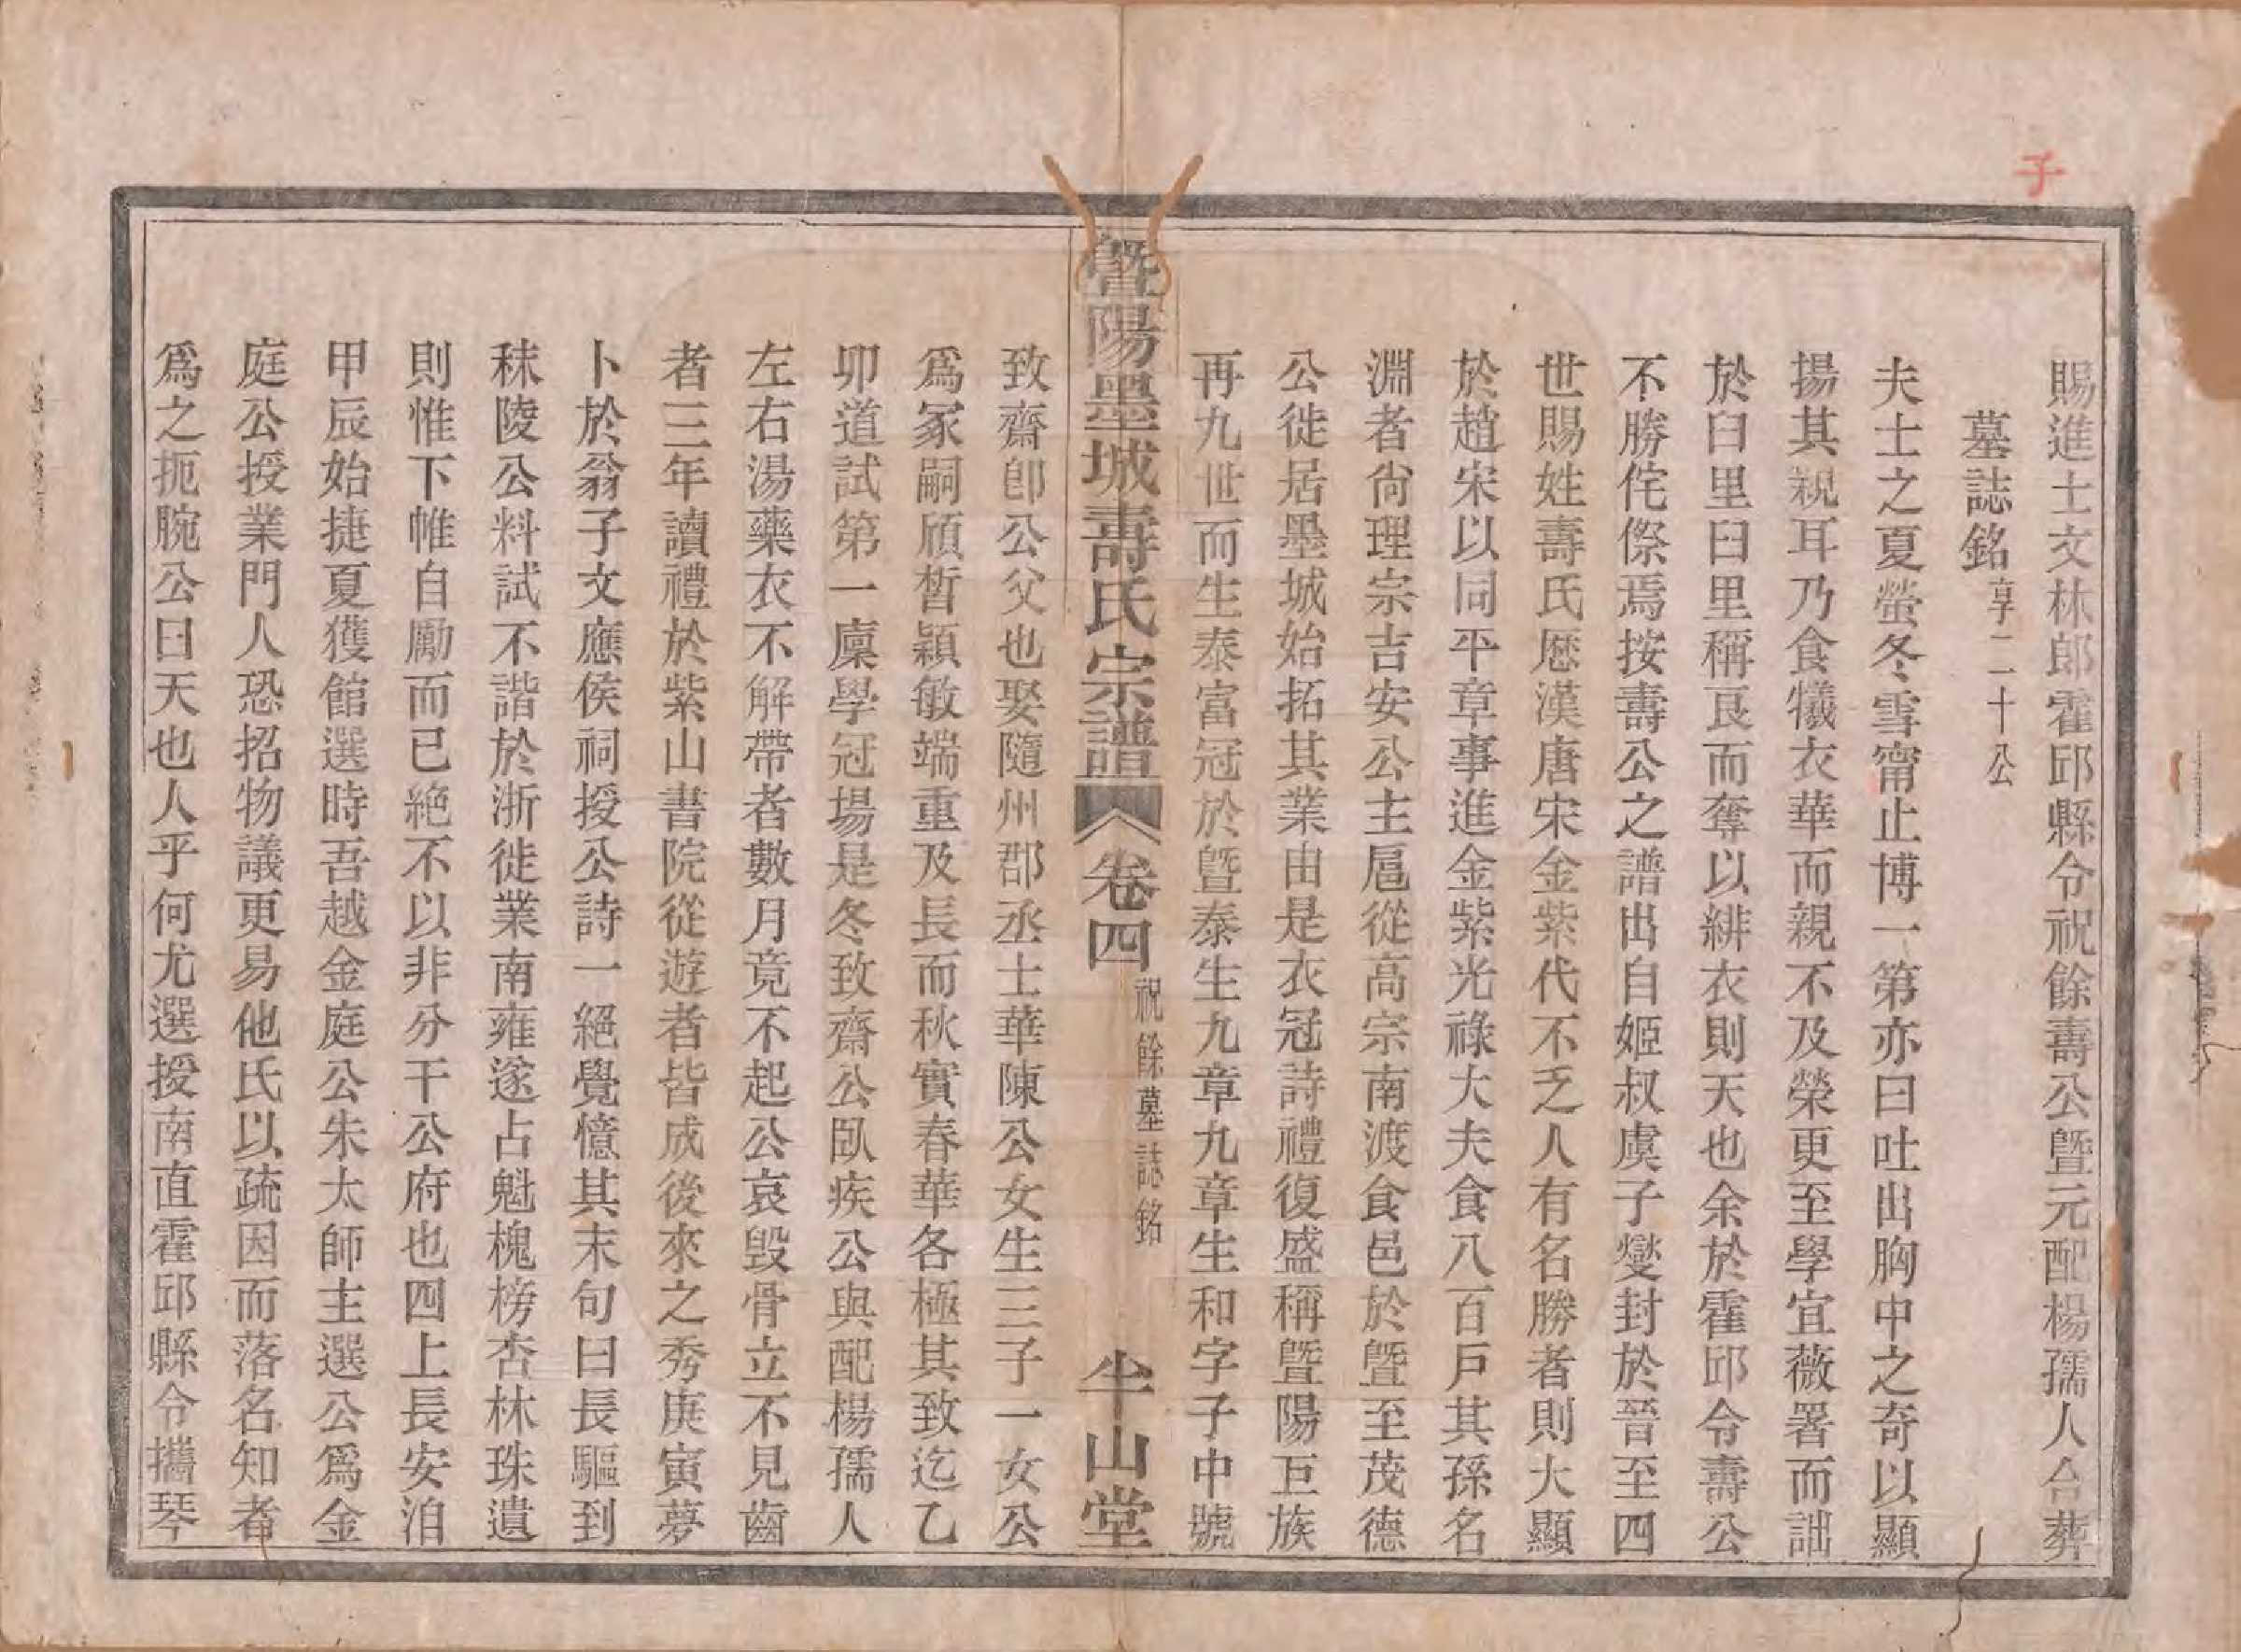 子
賜進士文林郎霍邱縣令祝餘壽公曁元配楊孺人合葬
墓誌銘享二十公
夫士之夏螢冬雪甯止博一第亦曰吐出胸中之奇以顯
揚其親耳乃食犧衣華而親不及榮更至學宜薇署而詘
於臼里臼里稱艮而奪以緋衣則天也余於霍邱令壽公
不勝侘傺焉按壽公之譜出自姬叔虞子燮封於晉至四
世賜姓壽氏歷漢唐宋金紫代不乏人有名勝者則大顯
於趙宋以同平章事進金紫光祿大夫食八百戸其孫名
淵者尙理宗吉安公主扈從高宗南渡食邑於曁至茂德
公徙居墨城始拓其業由是衣冠詩禮復盛稱曁陽巨族
再九世而生泰富冠於曁泰生九章九章生和字子中號
曁陽墨城壽氏宗譜 卷四 祝餘墓誌銘 半山堂
致齋卽公父也娶隨州郡丞士華陳公女生三子一女公
爲冢嗣頎皙穎敏端重及長而秋實春華各極其致迄乙
卯道試第一廩學冠場是冬致齋公臥疾公與配楊孺人
左右湯藥衣不解帶者數月竟不起公哀毀骨立不見齒
者三年讀禮於紫山書院從遊者皆成後來之秀庚寅夢
卜於翁子文應侯祠授公詩一絕覺憶其末句曰長驅到
秣陵公料試不諧於浙徙業南雍遂占魁槐榜杏林珠遺
則惟下帷自勵而已絕不以非分干公府也四上長安洎
甲辰始捷夏獲館選時吾越金庭公朱太師主選公爲金
庭公授業門人恐招物議更易他氏以疏因而落名知者
爲之扼腕公曰天也人乎何尤選授南直霍邱縣令攜琴